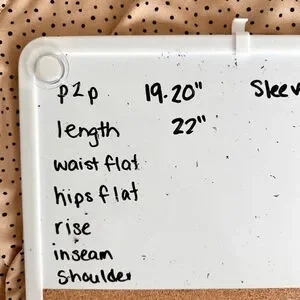 p2p 19-20" Sleev
length 22"
waist flat
hips flat
rise
inseam
Shoulder